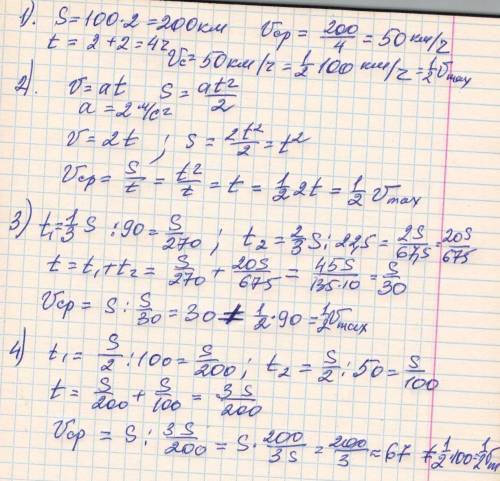 1). S = 100·2 = 200 км Vср = 200/4 = 50 км/ч
t = 2+2 = 4ч
Vc = 50 км/ч = 1/2 100 км/ч = 1/2 Vmax
2). V = at S = at²/2
a = 2 м/с²
V = 2t ; S = 2t²/2 = t²
Vср = S/t = t²/t = t = 1/2 2t = 1/2 Vmax
3) t₁ = 1/3 S : 90 = S/270 ; t₂ = 2/3 S : 22,5 = 2S/67,5 = 20S/675
t = t₁ + t₂ = S/270 + 20S/675 = 45S/135·10 = S/30
Vср = S : S/30 = 30 ≠ 1/2·90 = 1/2 Vmax
4) t₁ = S/2 : 100 = S/200 ; t₂ = S/2 : 50 = S/100
t = S/200 + S/100 = 3S/200
Vср = S : 3S/200 = S · 200/3S = 200/3 ≈ 67 ≠ 1/2·100 = 1/2 Vm